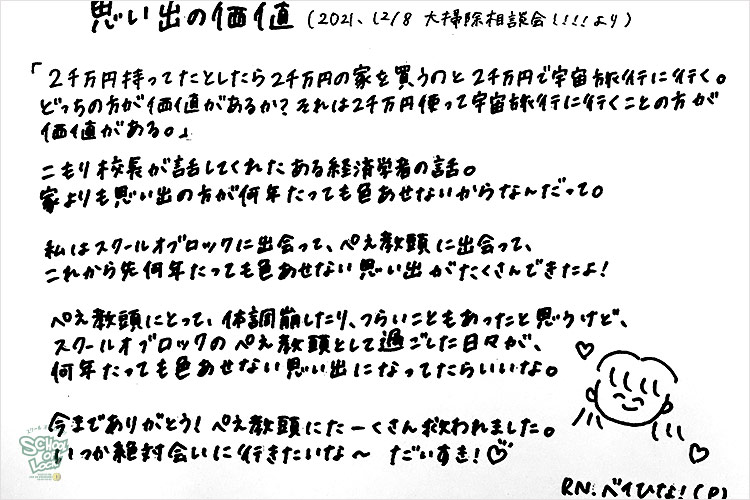 思い出の価値 (2021、12/8 大掃除相談会!!!!より)
「2千万円持ってたとしたら2千万円の家を買うのと2千万円で宇宙旅行に行く。
どっちの方が価値があるか?それは2千万円使って宇宙旅行に行くことの方が
価値がある。」
こもり校長が話してくれたある経済学者の話。
家よりも思い出の方が何年たっても色あせないからなんだって。
私はスクールオブロックに出会って、ぺえ教頭に出会って、
これから先何年たっても色あせない思い出がたくさんできたよ!
ぺえ教頭にとって、体調崩したり、つらいこともあったと思うけど、
スクールオブロックのぺえ教頭として過ごした日々が、
何年たっても色あせない思い出になってたらいいな。
今までありがとう!ぺえ教頭にたーくさん救われました。
いつか絶対会いに行きたいな〜 だいすき!♡
SCHOOL OF LOCK!
RN. ベイひな!(P)